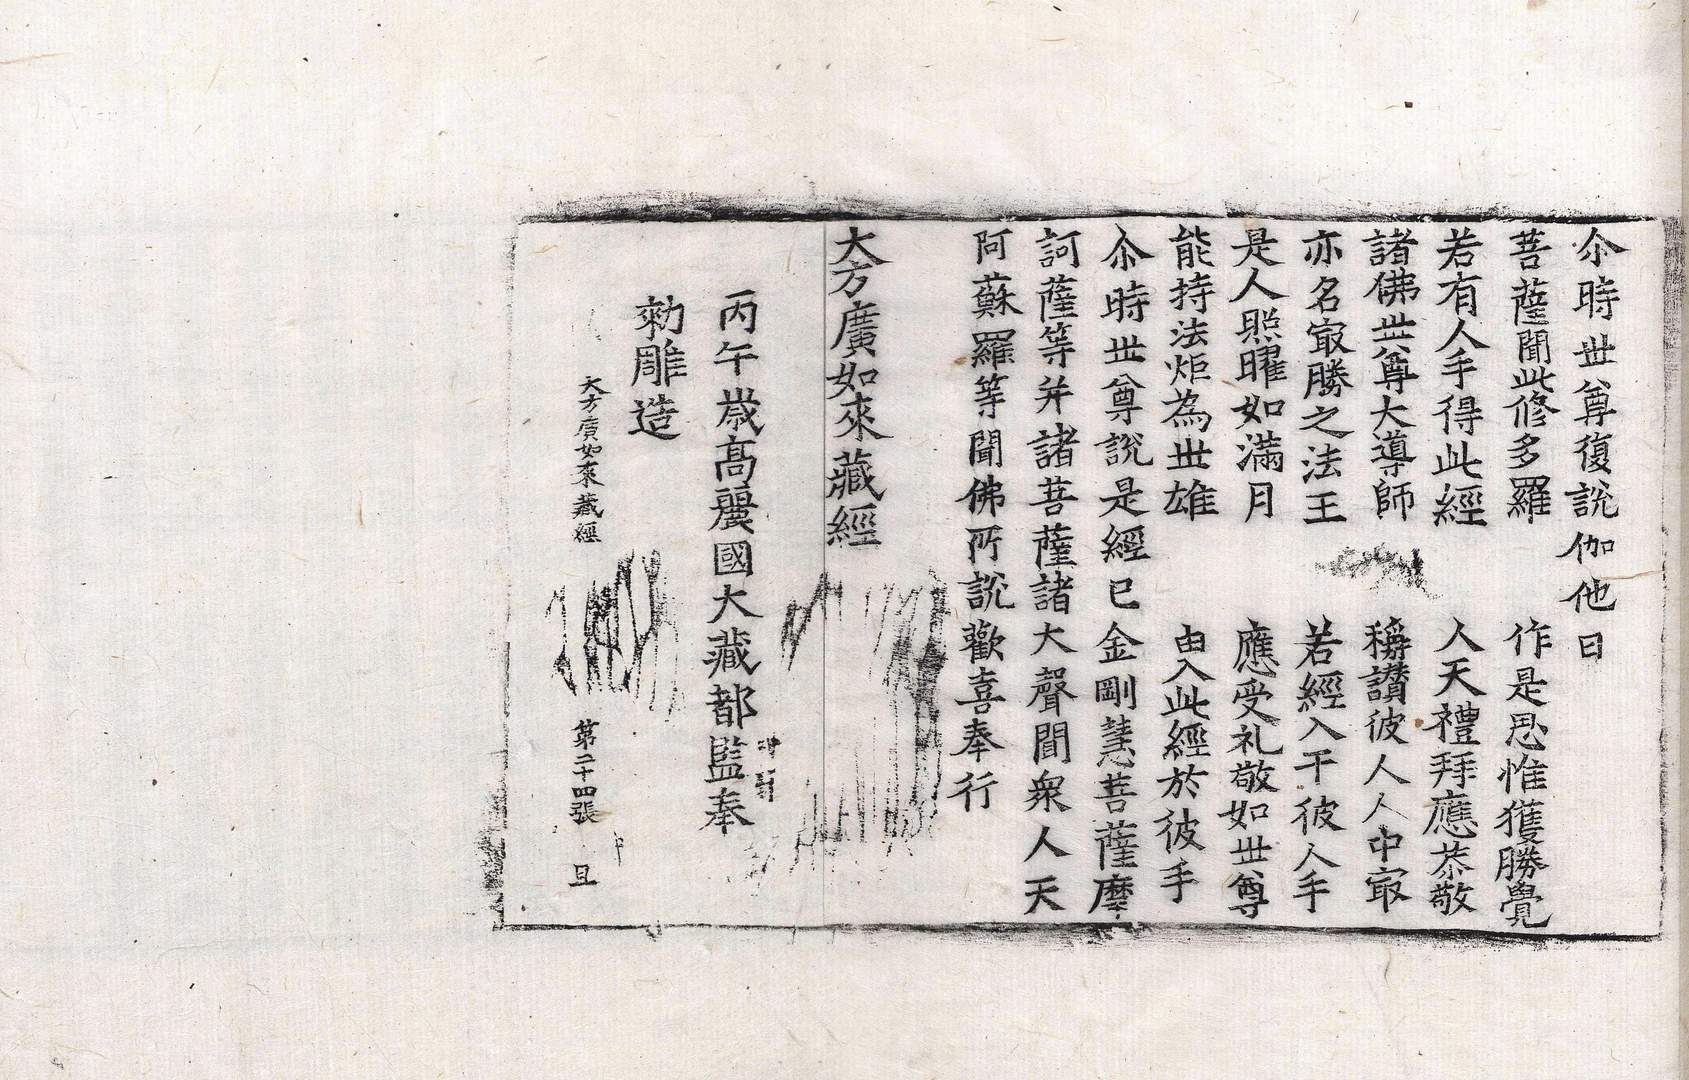 尒時丗尊復說伽他曰
菩薩聞此修多羅　作是思惟獲勝覺
若有人手得此經　人天禮拜應恭敬
諸佛丗尊大導師　稱讃彼人人中㝡
亦名㝡勝之法王　若經入干彼人手
是人照曜如滿月　應受礼敬如丗尊
能持法炬為丗雄　由入此經於彼手
尒時丗尊說是經已金剛慧菩薩摩
訶薩等并諸菩薩諸大聲聞衆人天
阿蘇羅等聞佛所說歡喜奉行
大方廣如來藏經
丙午歲高麗國大藏都監奉
勑雕造
大方廣如來藏經　第二十四張　旦